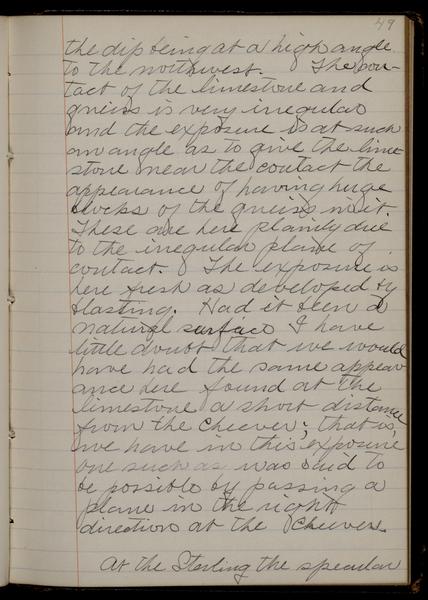 49
the dip being at a high angle
to the northwest. The con-
tact of the limestone and
gneiss is very irregular
and the exposure is at such
an angle as to give the lime
stone near the contact the
appearance of having huge
blocks of the gneiss in it.
These are here plainly due
to the irregular plane of
contact. The exposure is
here fresh as developed by
blasting. Had it been a
natural surface I have
little doubt that we would
have had the same appear
ance here found at the
limestone a short distance
from the Cheever; that is,
we have in this exposure
one such as was said to
be possible by passing a
plane in the right
direction at the Cheever.
At the Sterling the specular